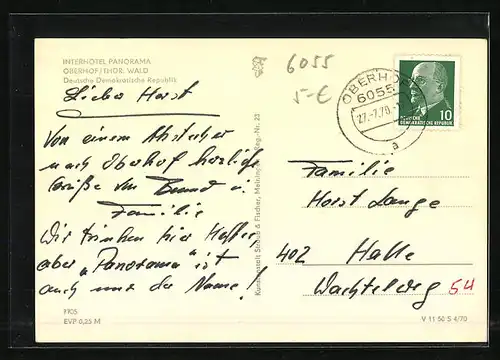 INTERHOTEL PANORAMA
OBERHOF/THÜR. WALD
Deutsche Demokratische Republik
Lieber Horst
Von einem Abstecher
nach Oberhof herzliche
Grüße von u.
Familie
Wir trinken hier Kaffee,
aber „Panorama" ist
auch nur der Name!
1105
EVP 0,25 M
6055
5-€
OBERHOF
6055
27.-7.70.-
a
10
DEUTSCHE
DEMOKRATISCHE REPUBLIK
Familie
Horst Lange
402 Halle
Wachtelweg 54
V 11 50 S 4/70